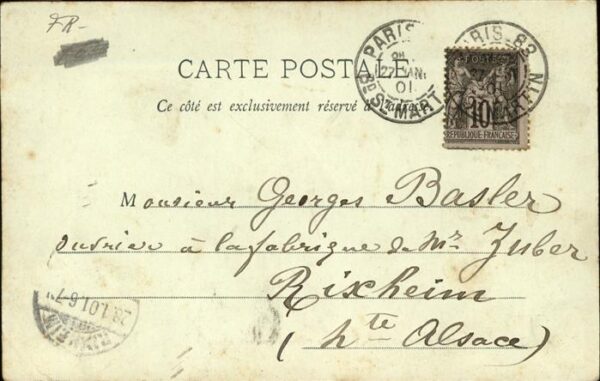 FR-
CARTE POSTALE
Ce côté est exclusivement réservé à l'adresse
PARIS
27 JAN.
01
BD ST MARTIN
PARIS-83
01
POSTE
10
REPUBLIQUE FRANÇAISE
Monsieur Georges Basler
ouvrier à la fabrique de Mr Zuber
Rixheim
(hte Alsace)
28.1.01.6-7